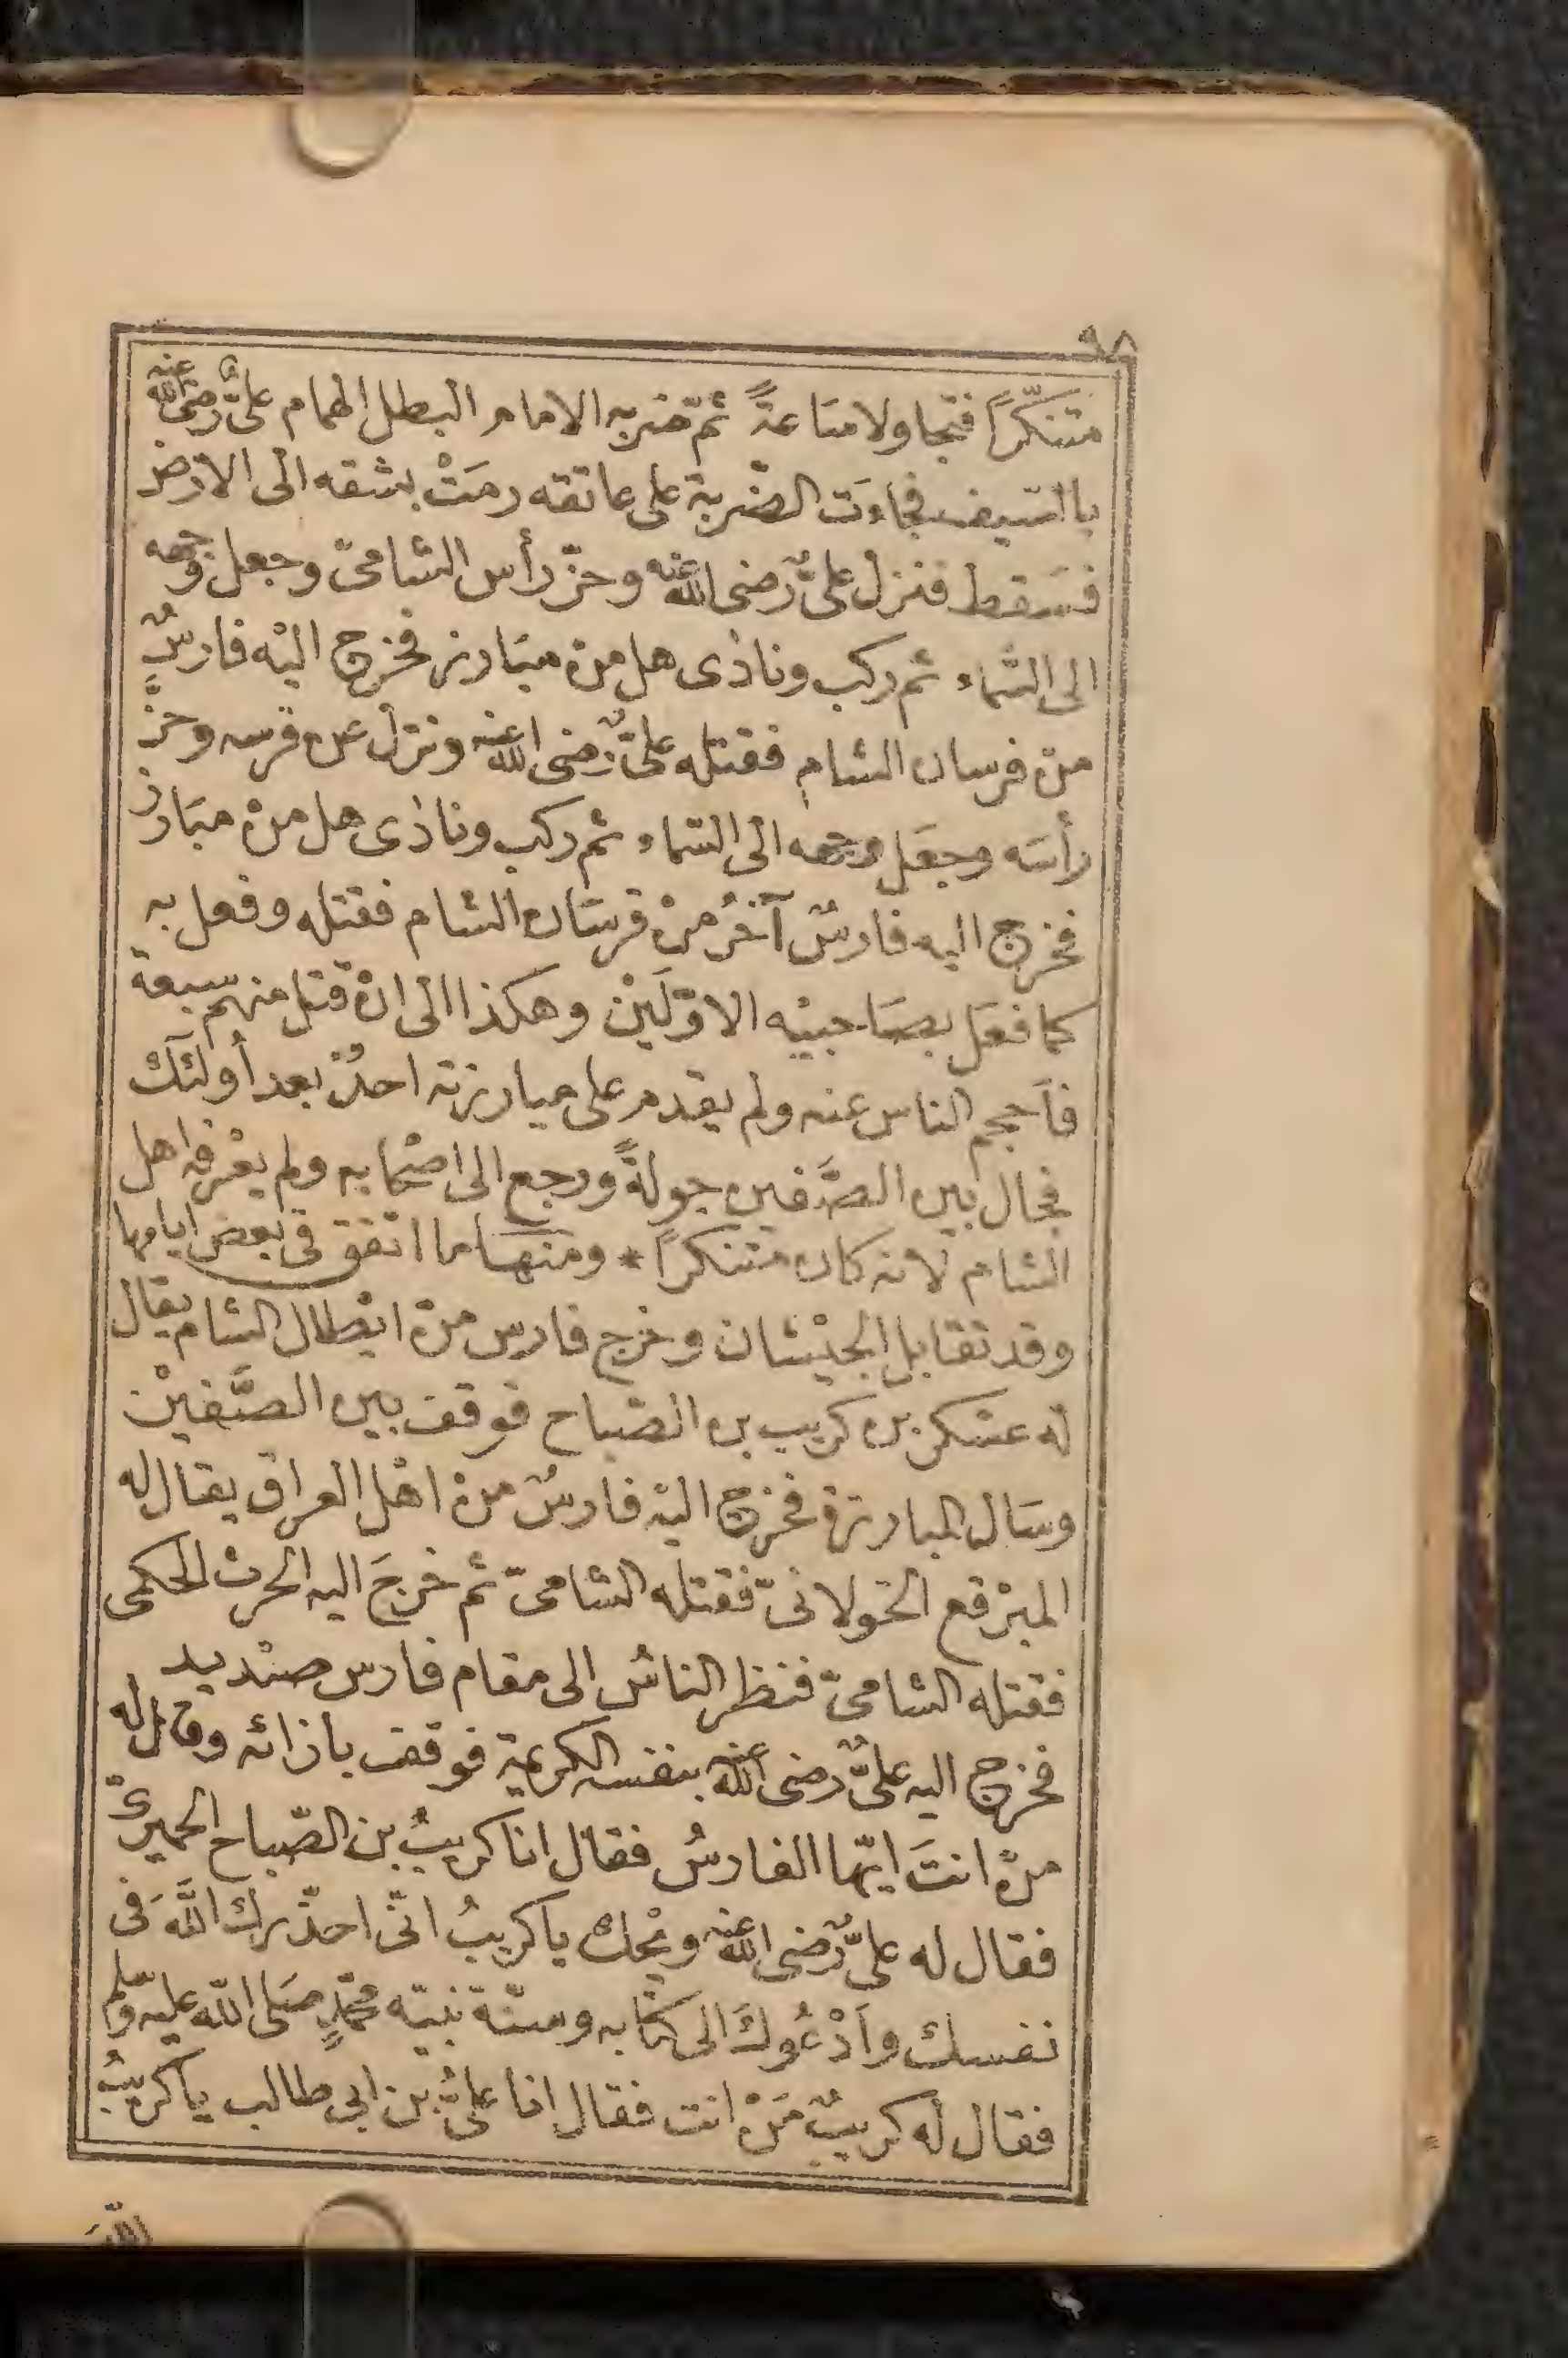 ٩٨
متنكّراً فتجاولا ساعةً ثمّ ضربه الامام البطل الهمام علىٌّ رضى الله عنه
بالسّيف فجاءَت الضّربة على عاتقه رمَتْ بشقه الى الارض
فسَقط فنزل علىٌّ رضى الله عنه وحزّ رأس الشامىّ وجعل وجهه
الى السّماء ثم ركب ونادٰى هل من مبَارز فخرج اليْه فارسٌ
منْ فرسان الشام فقتله علىٌّ رضى الله عنه ونزل عن فرسه وحزَّ
رأسَه وجعَل وجهه الى السّماء ثم ركب ونادٰى هل منْ مبَارز
فخرج اليه فارسٌ آخرُ منْ فرسَان الشام فقتله وفعل به
كما فعَل بصَاحبيْه الاوّلَيْن وهكذا الى انْ قتل منهم سبعة
فاَحجم الناس عنه ولم يقدم على مبارزته احدٌ بعد أولئك
فجال بين الصَّفين جولةً ورجع الى اصْحابه ولم يعْرفه اهل
الشام لانه كان متنكراً * ومنهَا ما اتفق فى بعض ايامها
وقد تقابل الجيْشان وخرج فارس منْ ابْطال الشام يقال
له عسْكر بن كريب بن الصّباح فوقف بين الصَّفيْن
وسَال المبارزة فخرج اليْه فارسٌ منْ اهْل العراق يقال له
المبرْقع الخولانىّ فقتله الشامىّ ثم خرجَ اليه الحرث الحكمى
فقتله الشامىّ فنظر الناسُ الى مقام فارس صنْديد
فخرج اليه علىٌّ رضى الله عنه بنفسه الكريمة فوقف بازائه وقال له
منْ انتَ ايّها الفارسُ فقال انا كريبُ بن الصّباح الحميرىّ
فقال له علىٌّ رضى الله عنه ويْحك يا كريبُ انّى احذّرك اللَّهَ فى
نفسك واَدْعُوكَ الى كتابه وسنّة نبيّه محمّدٍ صَلى اللّه عليه وسلم
فقال له كريبٌ مَنْ انت فقال انا علىُّ بن ابى طالب يا كريبُ
اللَّهَ